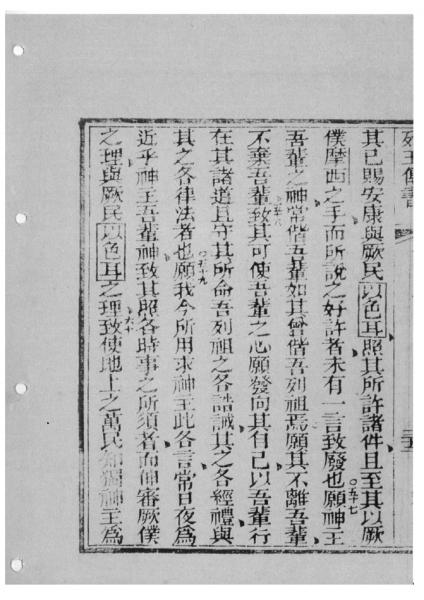 列王傳書
其已賜安康與厥民以色耳照其所許諸件且至其以厥
僕摩西之手而所說之好許者未有一言致廢也○五七願神王
吾輩之神常偕吾輩如其曾偕吾列祖焉願其不離吾輩
不棄吾輩○五十八致其可使吾輩之心願發向其自己以吾輩行
在其諸道且守其所命吾列祖之各誥誡其之各經禮與
其之各律法者也○五十九願我今所用求神王此各言常日夜為
近乎神王吾輩神致其照各時事之所須者而伸審厥僕
之理與厥民以色耳之理○六十致使地上之萬民知獨神王為